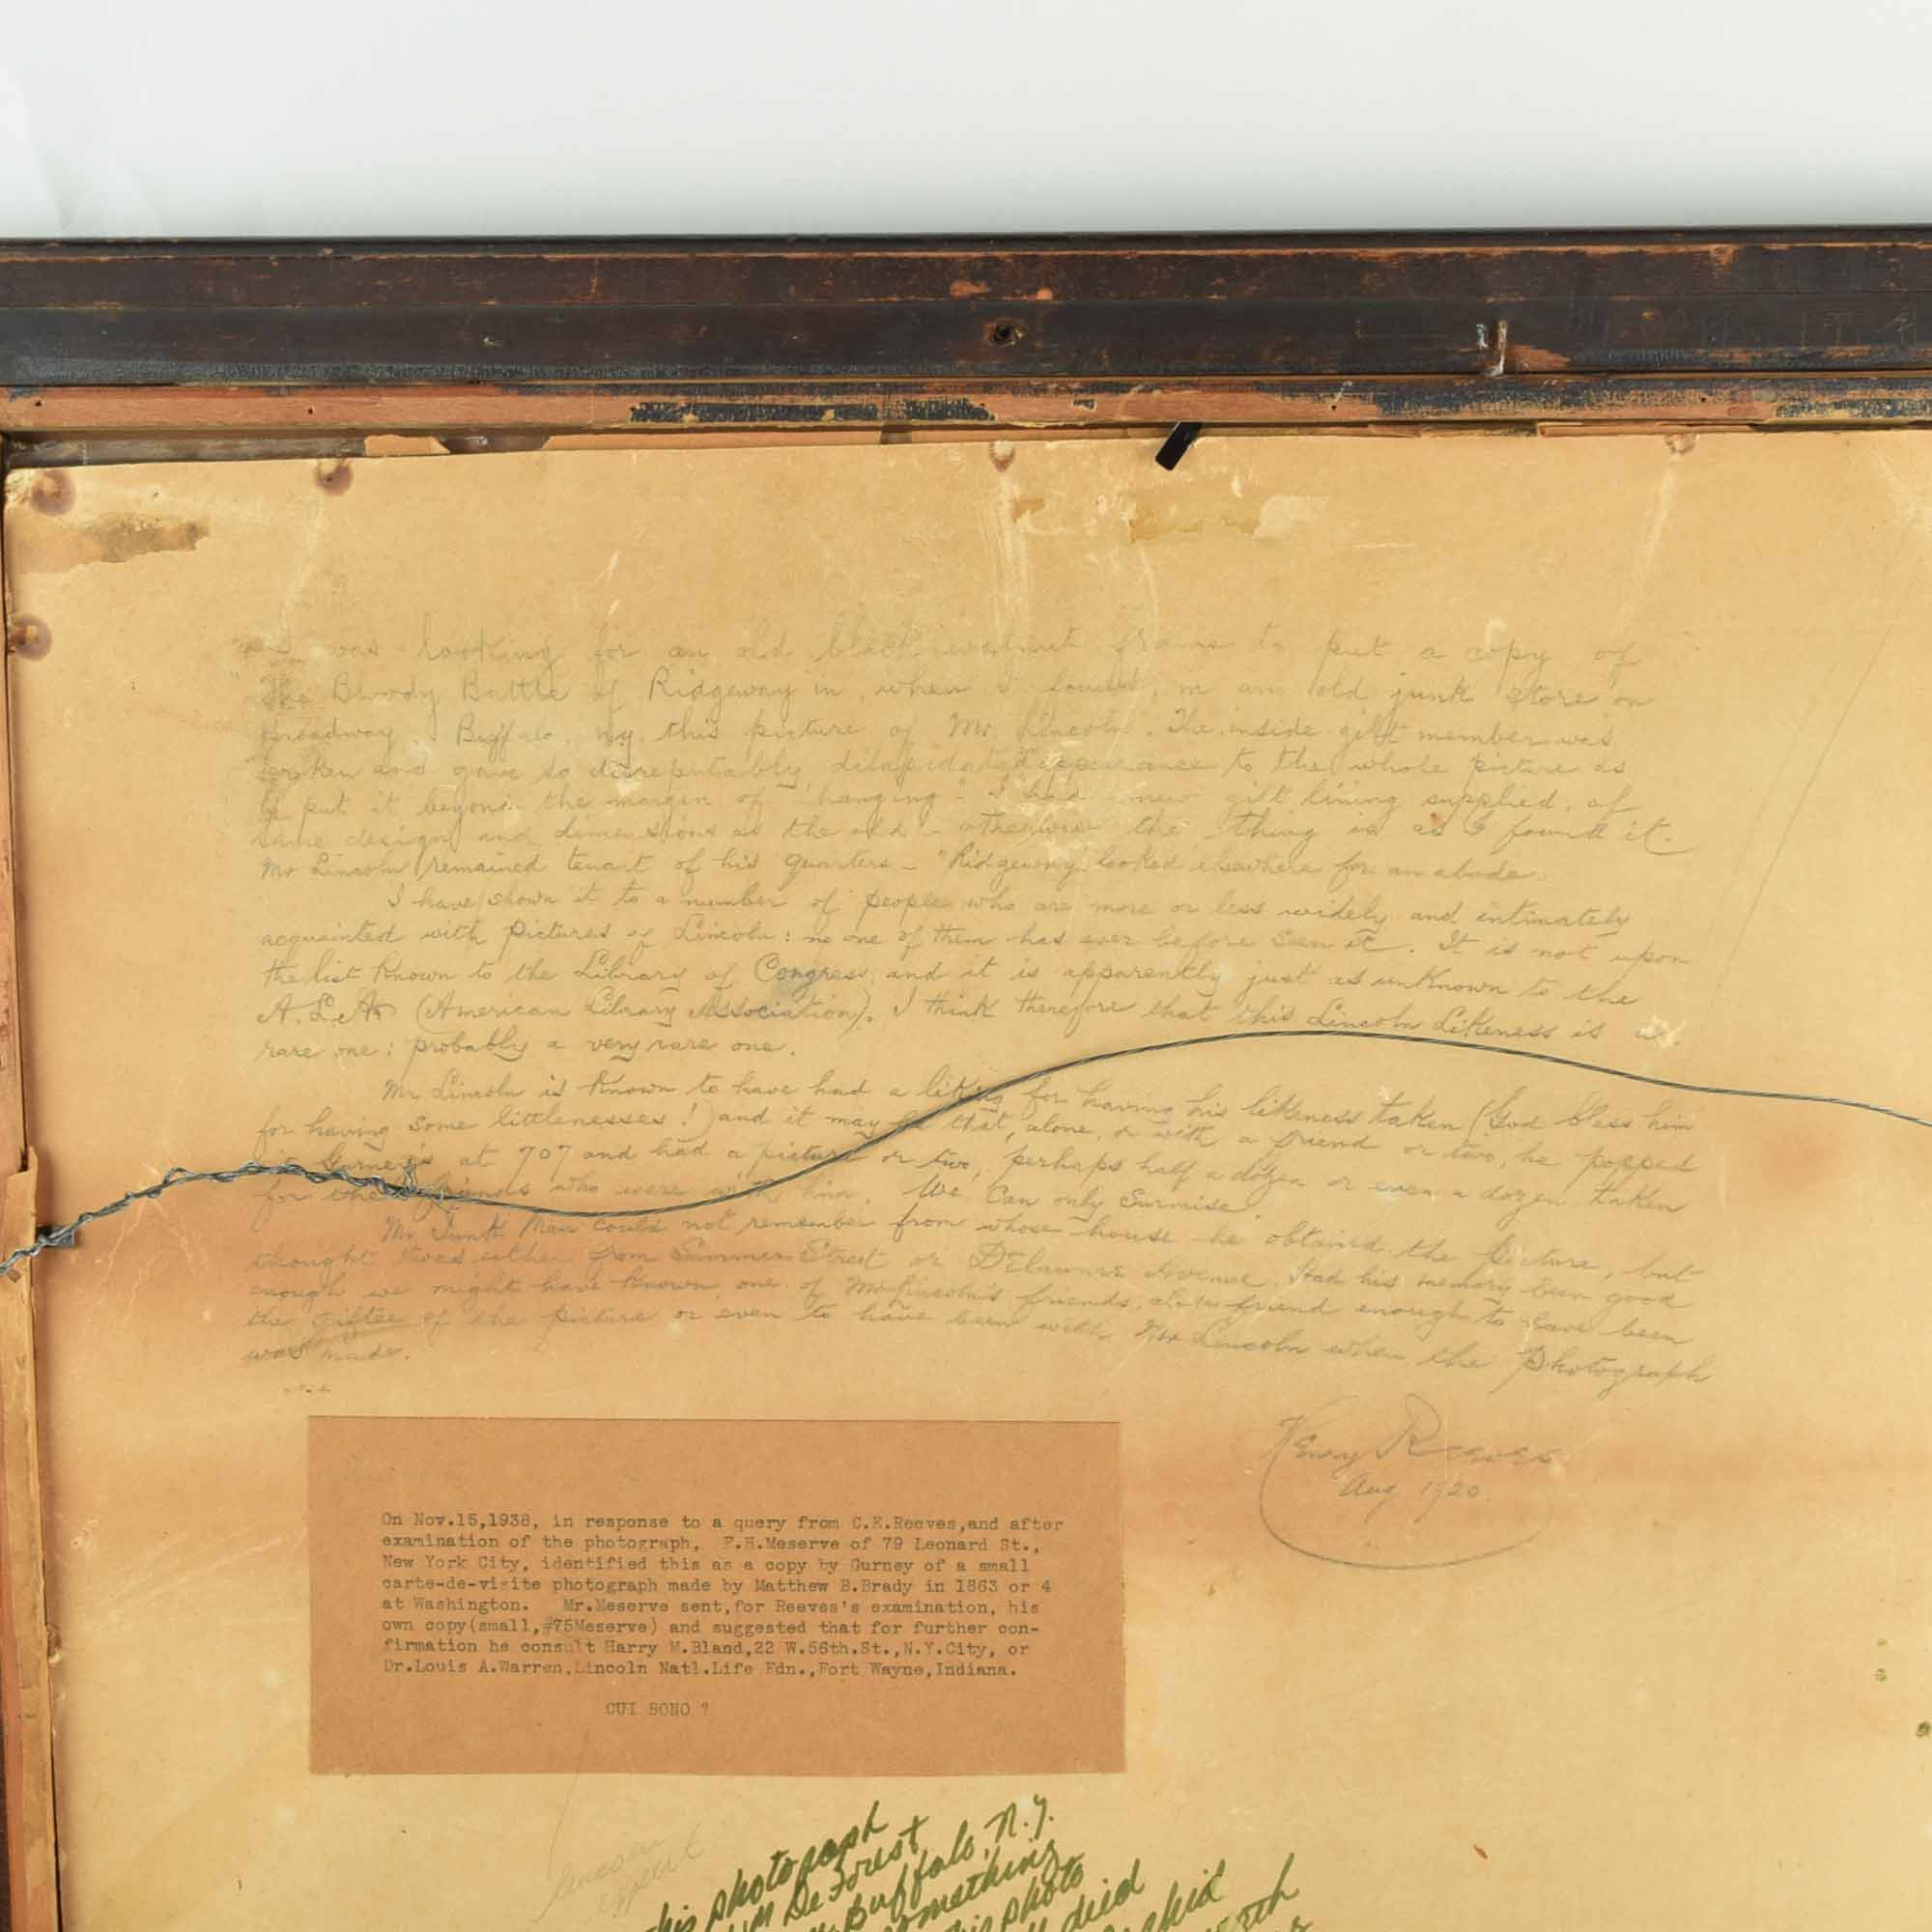 I was looking for an old black walnut frame to put a copy of
"The Bloody Battle of Ridgeway in, when I found, in an old junk store on
Broadway, Buffalo, N.Y. this picture of Mr. Lincoln. The inside gilt member was
broken and gave so disreputably dilapidated appearance to the whole picture as
to put it beyond the margin of "hanging". I had new gilt lining supplied, of
same design and dimensions as the old - otherwise the thing is as I found it.
Mr Lincoln remained tenant of his quarters - "Ridgeway looked elsewhere for an abode.
I have shown it to a number of people who are more or less widely and intimately
acquainted with pictures of Lincoln: no one of them has ever before seen it. It is not upon
the list known to the Library of Congress, and it is apparently just as unknown to the
A.L.A. (American Library Association). I think therefore that this Lincoln Likeness is a
rare one: probably a very rare one.
Mr Lincoln is known to have had a liking for having his likeness taken (God bless him
for having some littlenesses!) and it may be that, alone, or with a friend or two, he popped
Gurney's at 707 and had a picture or two, perhaps half a dozen or even a dozen taken
for the friends who were with him. We can only surmise.
Mr. Junk Man could not remember from whose house he obtained the picture, but
thought 'twas either from Summer Street or Delaware Avenue. Had his memory been good
enough we might have known one of Mr Lincoln's friends, friend enough to have been
the giftee of the picture or even to have been with Mr Lincoln when the photograph
was made.
Henry Reeves
Aug 1920.
On Nov.15,1938, in response to a query from C.E.Reeves,and after
examination of the photograph, F.H.Meserve of 79 Leonard St.,
New York City, identified this as a copy by Gurney of a small
carte-de-visite photograph made by Matthew B.Brady in 1863 or 4
at Washington. Mr.Meserve sent,for Reeves's examination, his
own copy(small,#75Meserve) and suggested that for further con-
firmation he consult Harry M.Bland,22 W.56th.St.,N.Y.City, or
Dr.Louis A.Warren,Lincoln Natl.Life Fdn.,Fort Wayne,Indiana.
CUI BONO ?
photograph
DeForest
Buffalo, N.Y.
something
photo
died